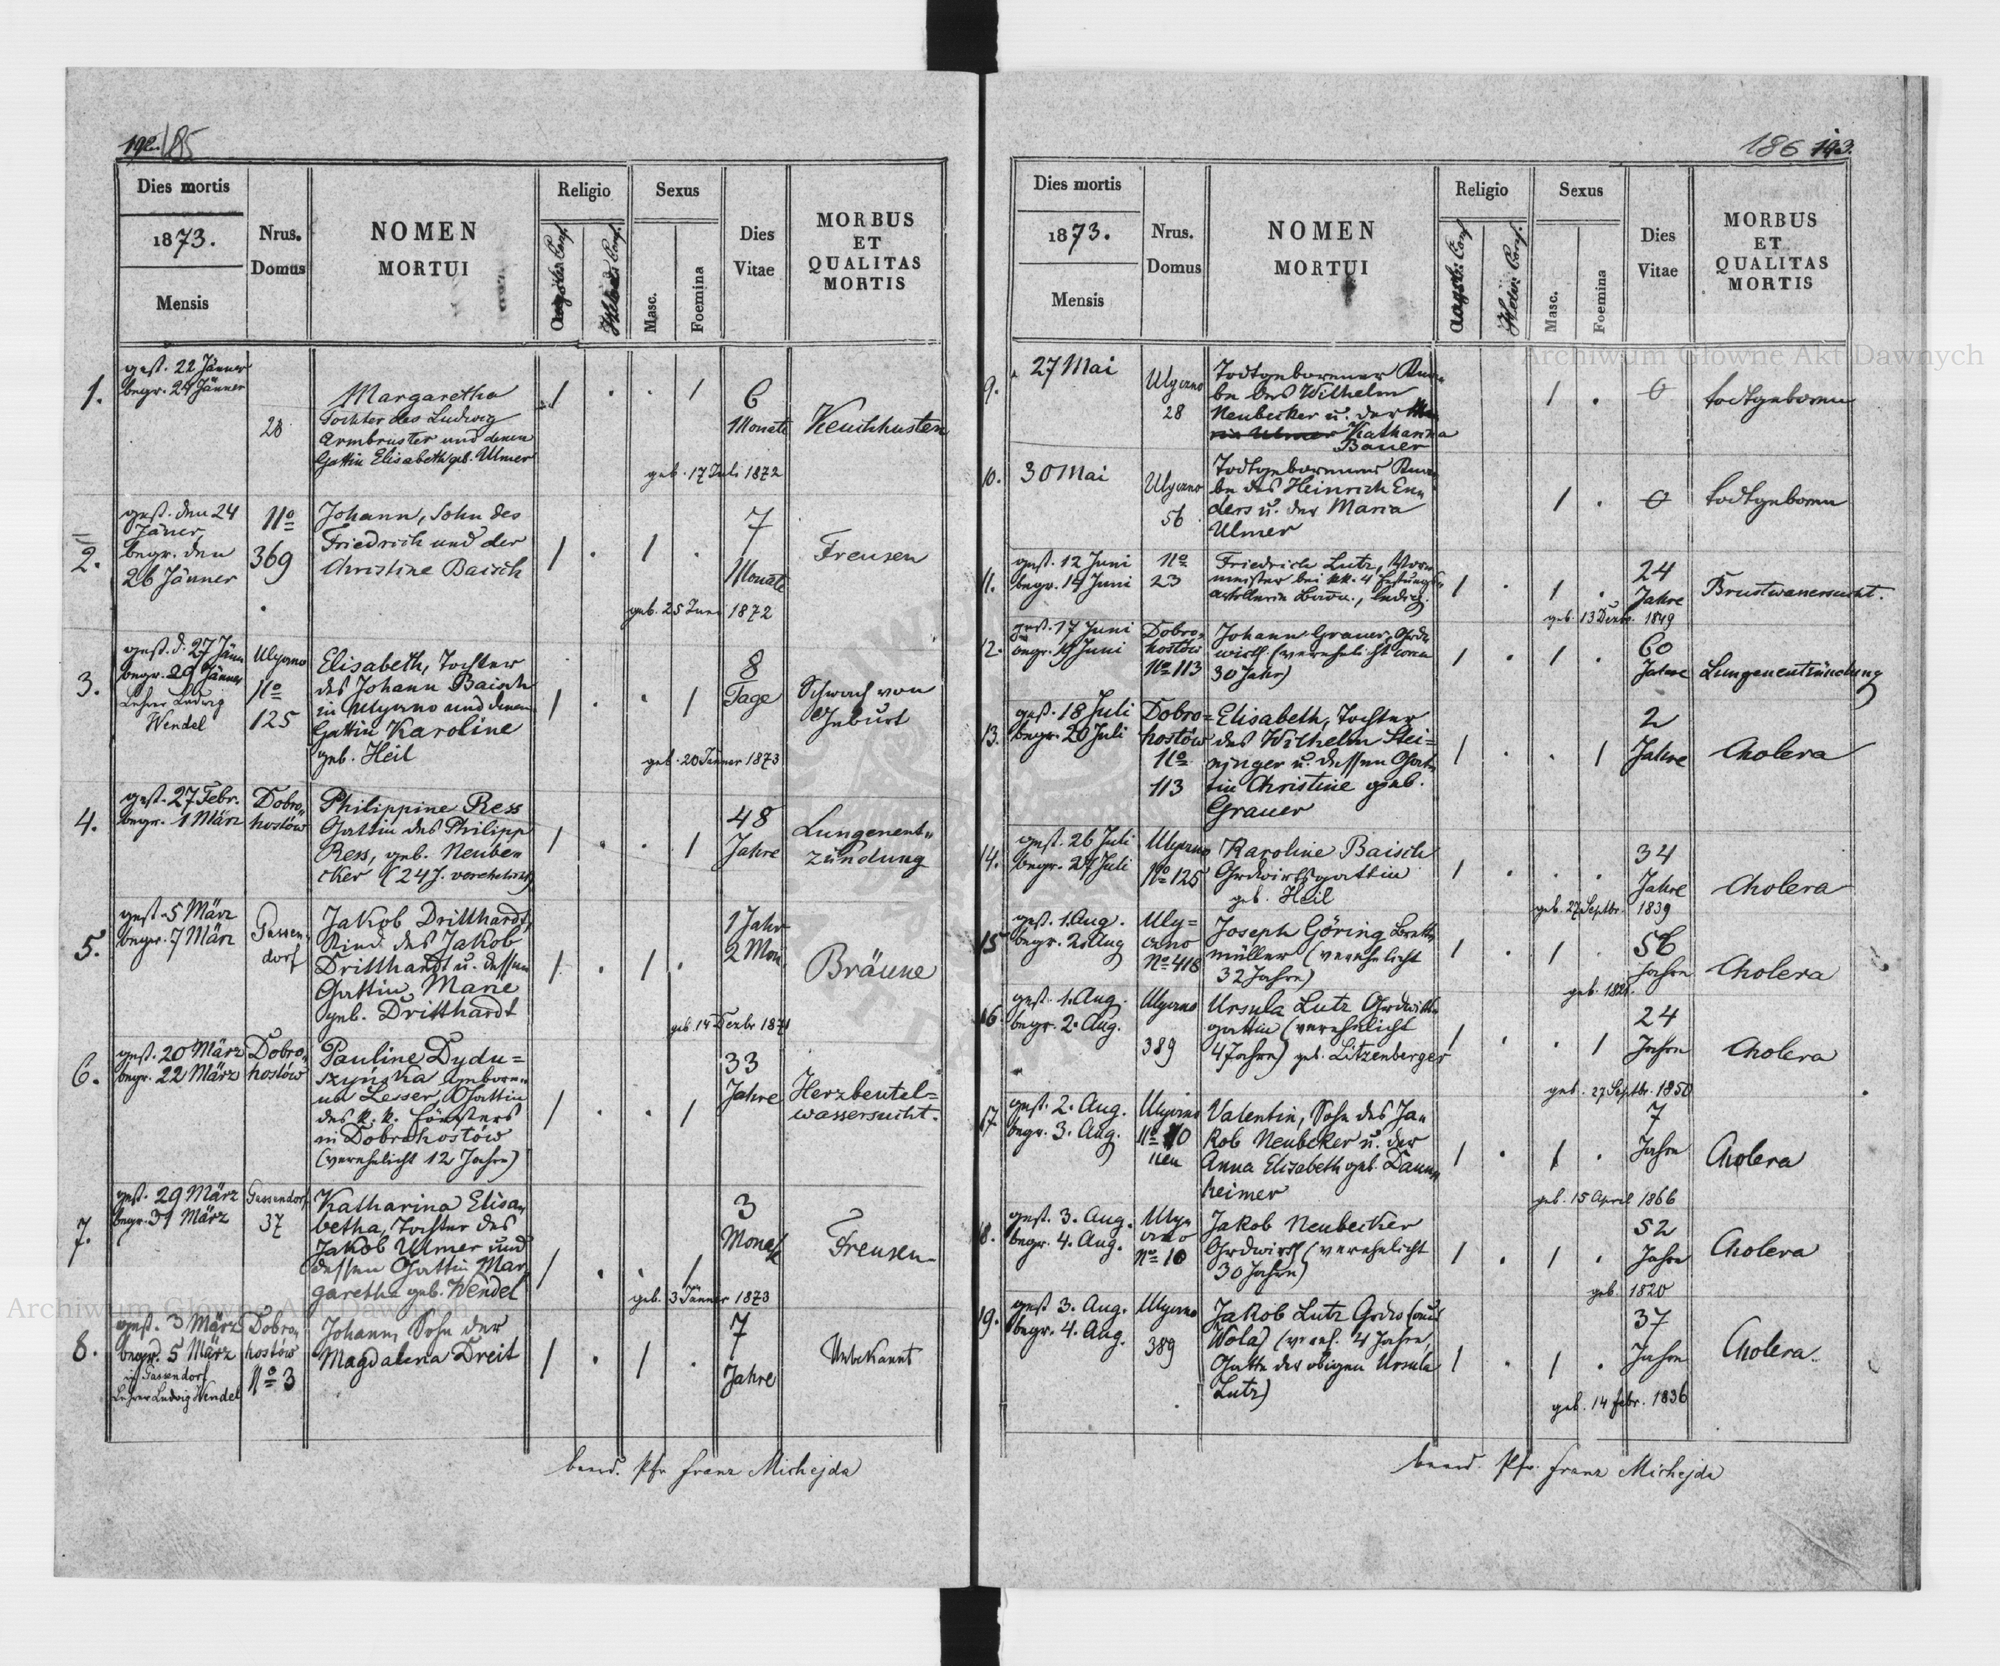 192. 185
Dies mortis
1873.
Mensis
Nrus.
Domus
NOMEN
MORTUI
Religio
Augsb. Conf.
Helv. Conf.
Sexus
Masc.
Foemina
Dies
Vitae
MORBUS
ET
QUALITAS
MORTIS
1.
gest. 22 Jänner
begr. 24 Jänner
28
Margaretha
Tochter des Ludwig
Armbruster und dessen
Gattin Elisabeth geb. Ulmer
6
Monate
geb. 17 Juli 1872
Keuchhusten
2.
gest. den 24
Jäner,
begr. den
26 Jänner
No
369
Johann, Sohn des
Friedrich und der
Christine Baisch
7
Monate
geb. 25 Juni 1872
Freusen
3.
gest. d. 27 Jänn
begr. 29 Jänner
Lehrer Ludwig
Wendel
Ulyczno
No
125
Elisabeth, Tochter
des Johann Baisch
in Ulyczno und dessen
Gattin Karoline
geb. Heil
8
Tage
geb. 20 Jänner 1873
Schwach von
Geburt
4.
gest. 27 Febr.
begr. 1 März
Dobro-
hostów
Philippine Ress
Gattin des Philipp
Ress, geb. Neube-
cker (24 J. verehelicht)
48
Jahre
Lungenent-
zündung
5.
gest. 5 März
begr. 7 März
Gassen-
dorf
Jakob Dritthardt,
Kind des Jakob
Dritthardt u. dessen
Gattin, Marie
geb. Dritthardt
1 Jahr
2 Mon.
geb. 14 Dezbr 1871
Bräune
6.
gest. 20 März
begr. 22 März
Dobro-
hostów
Pauline Dydu=
szyńska gebore-
ne Lesser, Gattin
des k. k. Försters
in Dobrohostów
(verehelicht 12 Jahre)
33
Jahre
Herzbeutel=
wassersucht.
7.
gest. 29 März
begr. 31 März
Gassendorf
37
Katharina Elisa-
betha, Tochter des
Jakob Ulmer und
dessen Gattin Mar-
garetha geb. Wendel
3
Monate
geb. 3 Jänner 1873
Freusen
8.
gest. 3 März
begr. 5 März
in Gassendorf
Lehrer Ludwig Wendel
Dobro-
hostów
No 3
Johann, Sohn der
Magdalena Dreit
7
Jahre
Unbekannt
Pfr Franz Michejda
186 193.
Dies mortis
1873.
Mensis
Nrus.
Domus
NOMEN
MORTUI
Religio
Augsb. Conf.
Helv. Conf.
Sexus
Masc.
Foemina
Dies
Vitae
MORBUS
ET
QUALITAS
MORTIS
9.
27 Mai
Ulyczno
28
Todtgeborener Kna-
be des Wilhelm
Neubecker u. der
Katharina
Bauer
0
todtgeboren
10.
30 Mai
Ulyczno
56
Todtgeborener Kna-
be des Heinrich En-
ders u. der Maria
Ulmer
0
todtgeboren
11.
gest. 12 Juni
begr. 14 Juni
No
23
Friedrich Lutz,
meister bei kk. 4 Festungs-
artillerie ledig.
24
Jahre
geb. 13 Dezbr. 1849
Brustwassersucht.
12.
gest. 17 Juni
begr. 19 Juni
Dobro-
hostów
No 113
Johann Grauer, Grd-
wirth (verehelicht
30 Jahr)
60
Jahre
Lungenentzündung
13.
gest. 18 Juli
begr. 20 Juli
Dobro=
hostów
No
113
Elisabeth, Tochter
des Wilhelm Stei=
ninger u. dessen Gat-
tin Christine geb.
Grauer
2
Jahre
Cholera
14.
gest. 26 Juli
begr. 27 Juli
Ulyczno
No 125
Karoline Baisch
Grdwirthsgattin
geb. Heil
34
Jahre
geb. 27 Septbr. 1839
Cholera
15
gest. 1. Aug.
begr. 2. Aug
Uly=
czno
No 416
Joseph Göring Brett-
müller (verehelicht
32 Jahre)
56
Jahre
Cholera
16.
gest. 1. Aug.
begr. 2. Aug.
Ulyczno
389
Ursula Lutz Grdwirths-
gattin (verehelicht
4 Jahre) geb. Litzenberger
24
Jahre
geb. 27 Septbr. 1850
Cholera
17.
gest. 2. Aug.
begr. 3. Aug.
Ulyczno
No 10
neu
Valentin, Sohn des Ja-
kob Neubecker u. der
Anna Elisabeth geb. Dann-
heimer
7
Jahre
geb. 15 April 1866
Cholera
18.
gest. 3. Aug.
begr. 4. Aug.
Uly-
czno
No 10
Jakob Neubecker
Grdwirth (verehelicht
30 Jahre)
52
Jahre
geb. 1820
Cholera
19.
gest 3. Aug.
begr. 4. Aug.
Ulyczno
389
Jakob Lutz Grdw (aus
Wola) (vereh. 4 Jahre,
Gatte der obigen Ursula
Lutz)
37
Jahre
geb. 14 Febr. 1836
Cholera.
Pfr. Franz Michejda
Archiwum Główne Akt Dawnych
Archiwum Główne Akt Dawnych